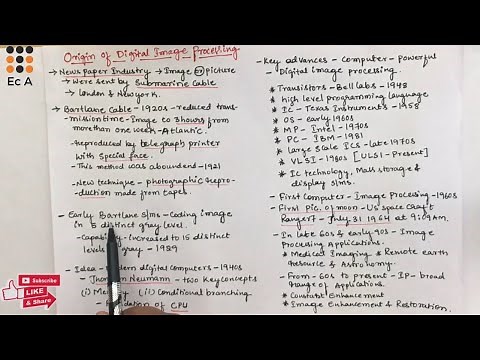 Origin of Digital Image Processing
Ec A
→ News Paper Industry → Image or picture
→ Were sent by Submarine Cable
→ London & Newyork.
→ Bartlane Cable - 1920s - reduced trans-
mission time - Image to 3 hours from
more than one week - Atlantic.
- Reproduced by telegraph printer
with Special face.
- This method was abounend - 1921
- New technique - photographic Repro-
duction made from tapes.
- Early Bartlane s/ms - Coding image
in 5 distinct gray level.
- Capability - increased to 15 distinct
levels gray - 1929
- Idea - Modern digital computers - 1940s
- Jhon von Neumann - two Key concepts
(i) Memory (ii) Conditional branching
- Foundation of CPU
Subscribe
LIKE
& Share
- Key advances - Computer - Powerful
- Digital image processing.
* Transistors - Bell labs - 1948
* high level programming language
* IC - Texas Instruments - 1958
* OS - early 1960s
* MP - Intel - 1970s
* PC - IBM - 1981
* large Scale ICs - late 1970s
* VLSI - 1980s [ULSI - Present]
* IC technology, Mass storage &
display s/ms.
- First Computer - Image Processing - 1960s
- First pic. of moon - US space Craft
Ranger 7 - July 31 1964 at 9:09 AM.
- In late 60s and early 70s - Image
Processing Applications.
* Medical Imaging & Remote earth
Resource & Astronomy.
- From - 60s to present - IP - broad
range of Applications.
* Constast Enhancement
* Image Enhancement & Restoration.